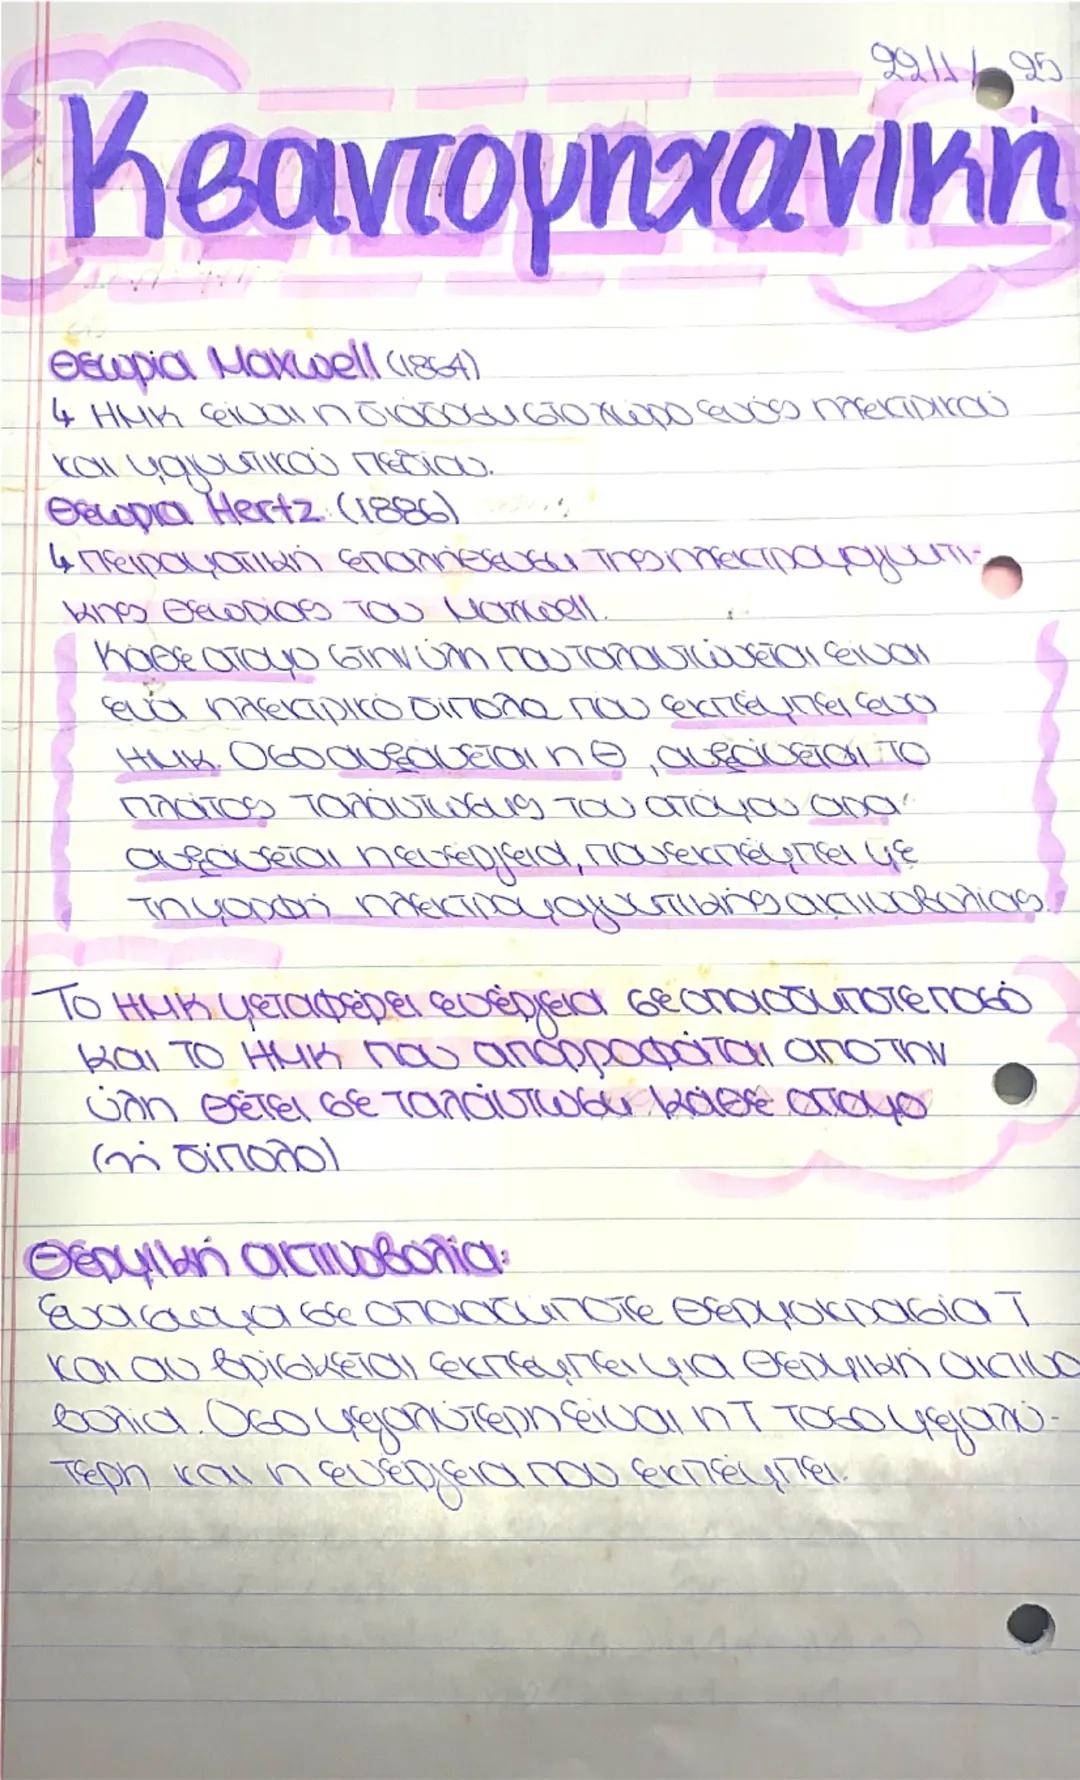 22/1/25
Κβαντομηχανική
Θεωρία Maxwell (1864)
↳ ΗΜΚ είναι η διάδοση στο χώρο ενός ηλεκτρικού
και μαγνητικού πεδίου.
Θεωρία Hertz (1886)
↳ Πειραματική επαλήθευση της ηλεκτρομαγνητι-
κης θεωρίας του Maxwell.
Κάθε άτομο στην ύλη που ταλαντώνεται είναι
ενα ηλεκτρικό δίπολο που εκπέμπει ενα
ΗΜΚ. Όσο αυξάνεται η Θ, αυξάνεται το
πλάτος ταλάντωσης του ατόμου αρα
αυξάνεται η ενέργεια, που εκπέμπει με
τη μορφή ηλεκτρομαγνητικής ακτινοβολίας.
Το ΗΜΚ μεταφέρει ενέργεια σε οποιοδήποτε ποσό
και το ΗΜΚ που απορροφάται απο την
ύλη θέτει σε ταλάντωση κάθε άτομο
(ή δίπολο)
Θερμική ακτινοβολία:
Ενα σωμα σε οποιαδήποτε θερμοκρασία T
και αν βρίσκεται εκπέμπει μια θερμική ακτινο
βολία. Όσο μεγαλύτερη είναι η T τόσο μεγαλύ-
τερη και η ενέργεια που εκπέμπει.